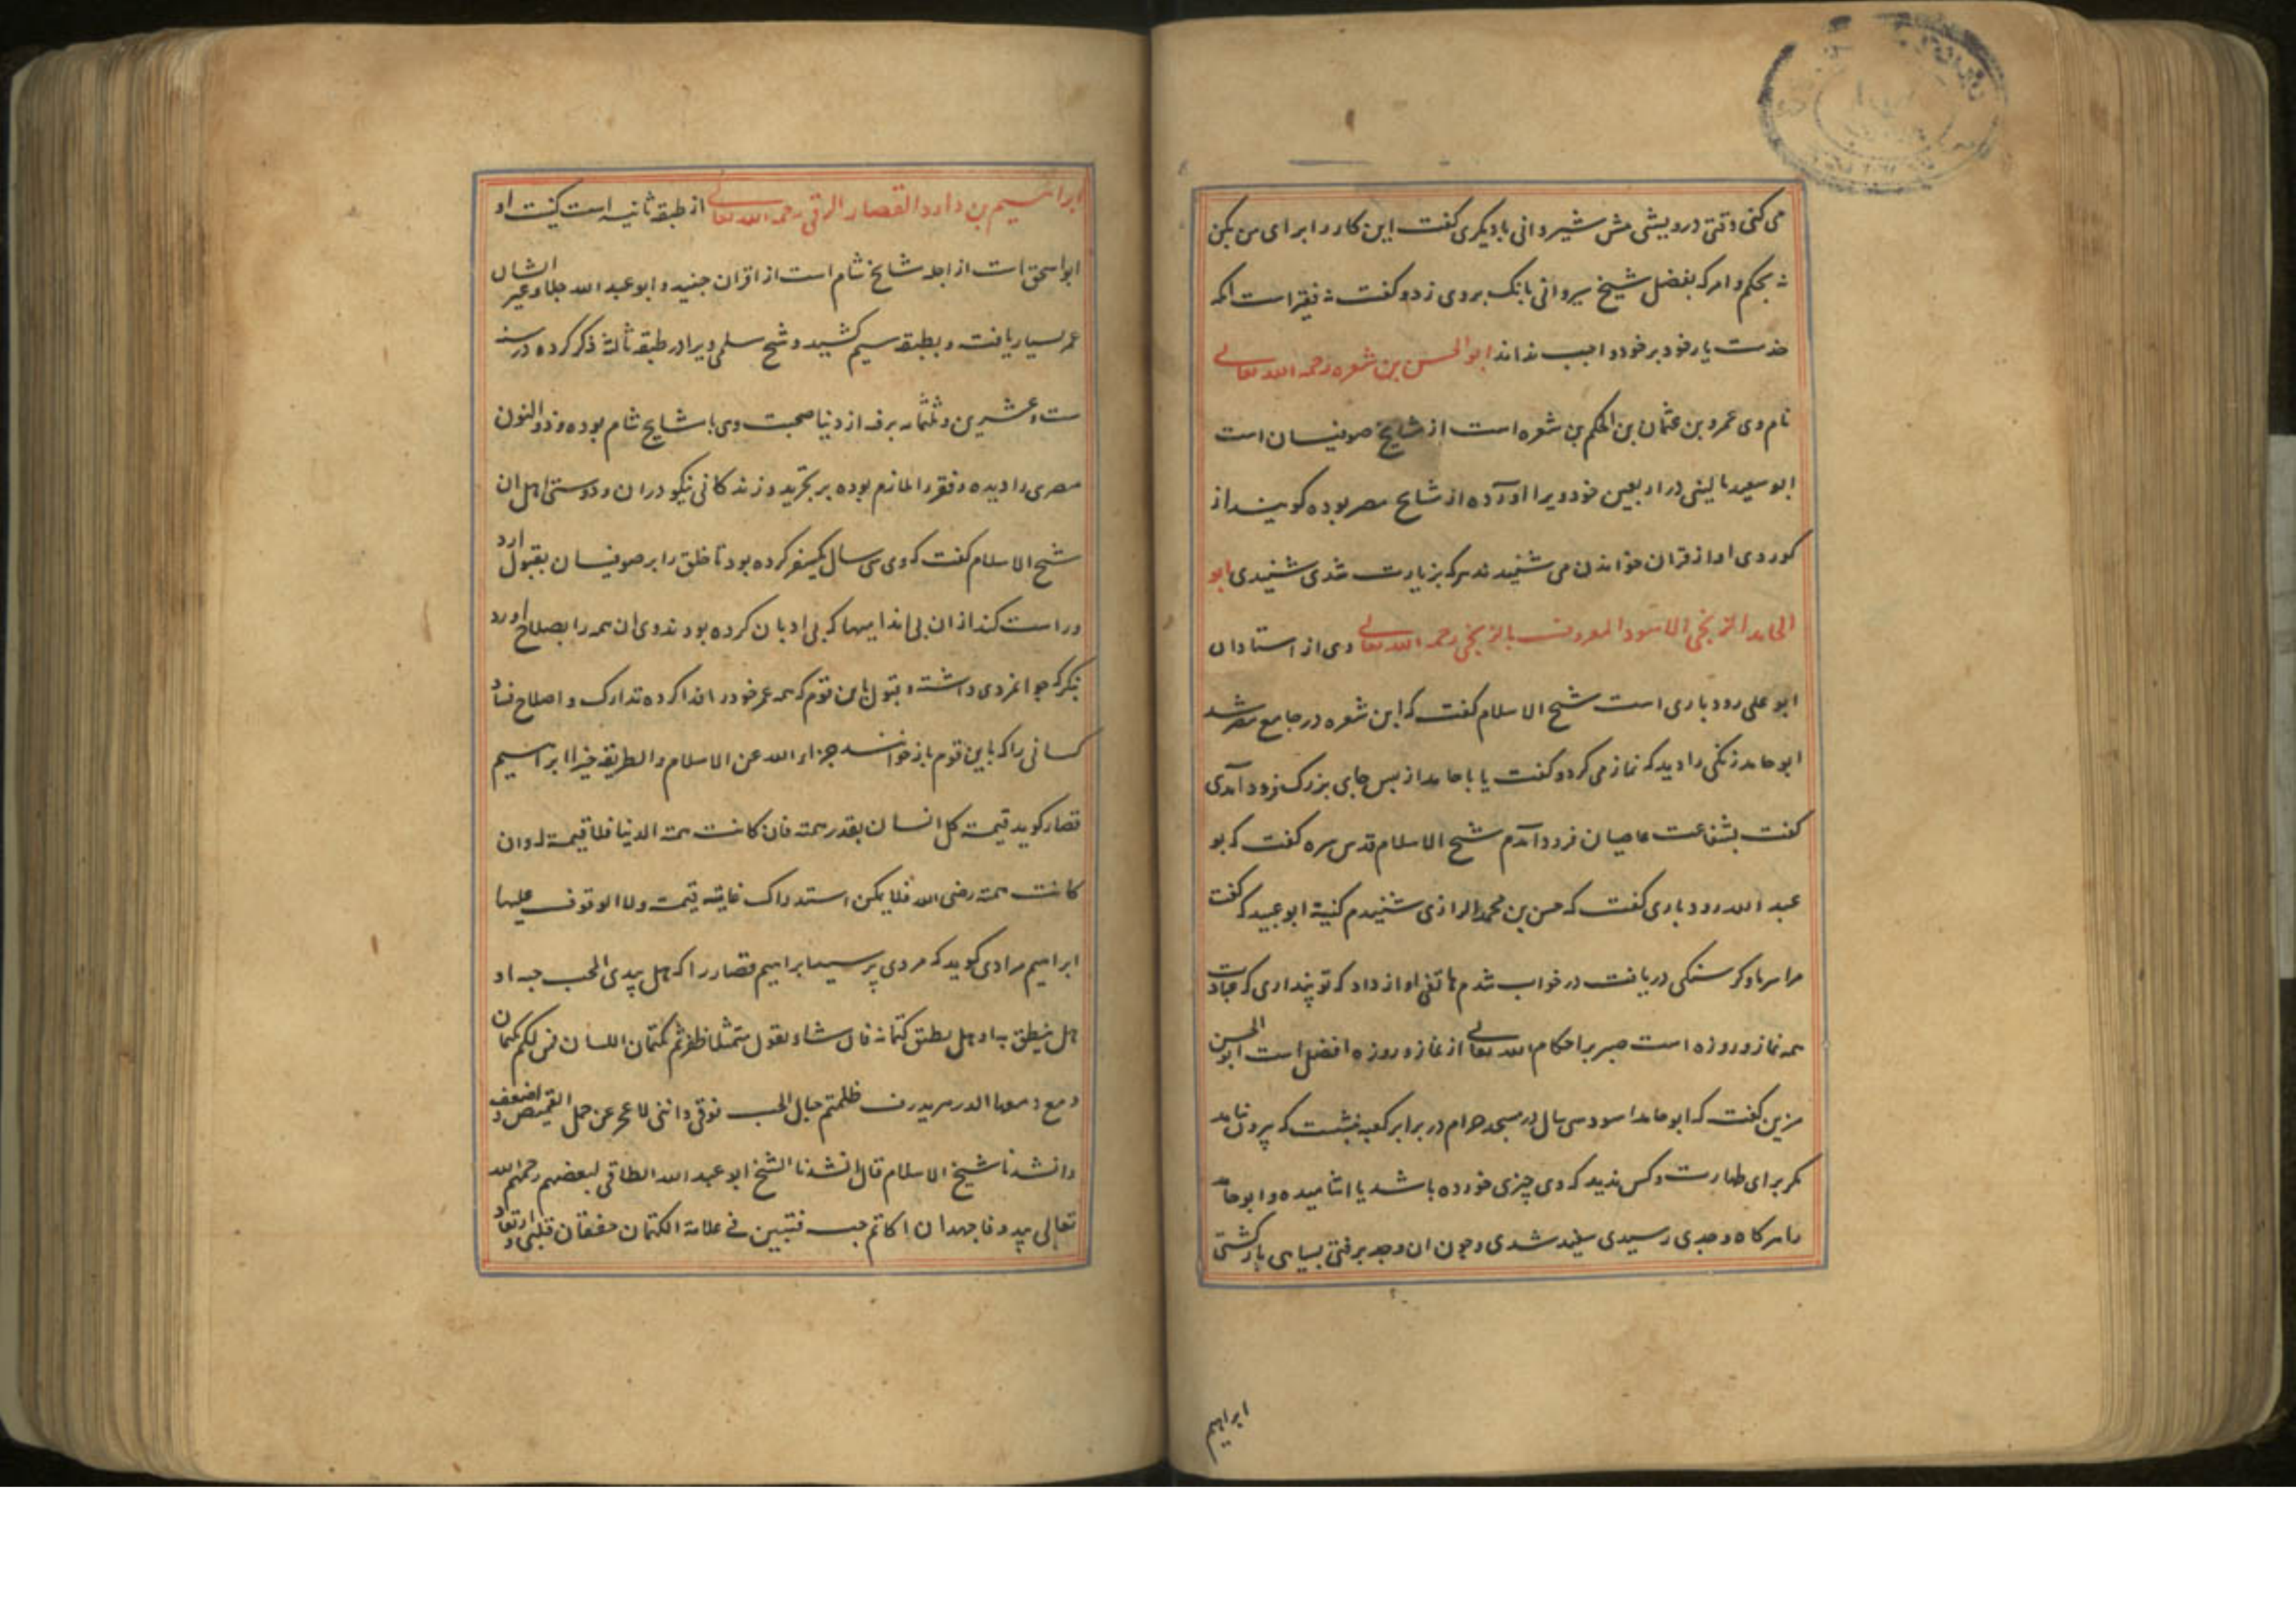 می کنی وقتی درویشی پیش شیروانی بادیگری گفت این کار را برای من بکن
نه بحکم وامر که بفضل شیخ سیروانی بانک بروی زد و گفت نه فقیر است انکه
خدمت یار خود بر خود واجب نداند ابو الحسن بن شعره رحمه الله تعالی
نام وی عمرو بن عثمان بن الحکم بن شعره است از مشایخ صوفیان است
ابو سعید مالینی در اربعین خود ویرا آورده از مشایخ مصر بوده گویند از
گور وی اواز قران خواندن می شنیدند هرکه بزیارت شدی شنیدی ابو
الحامد الزنجی الاسود المعروف بالزنجی رحمه الله تعالی وی از استادان
ابو علی رودباری است شیخ الاسلام گفت که ابن شعره در جامع مصر شد
ابو حامد زنگی را دید که نماز می کرد و گفت یا با حامد از بس جای بزرگ فرود آمدی
گفت بشفاعت عاصیان فرود آمدم شیخ الاسلام قدس سره گفت که بو
عبد الله رودباری گفت که حسن بن محمد الرازی شنیدم کنیة ابو عبید که گفت
مرا سرما و گرسنگی دریافت در خواب شدم هاتفی اواز داد که تو پنداری که عبادت
همه نماز و روزه است صبر بر احکام الله تعالی از نماز و روزه افضل است ابو الحسن
مزین گفت که ابو حامد اسود سی سال در مسجد حرام در برابر کعبه نشست که بیرون نیامد
مگر برای طهارت و کس ندید که وی چیزی خورده باشد یا اشامیده و ابو حامد
را هرگاه وجدی رسیدی سفید شدی وچون ان وجد برفتی بسیاهی بازگشتی
ابراهیم
ابراهیم بن داود القصار الرقی رحمه الله تعالی از طبقه ثانیه است کنیت او
ابو اسحق است از اجله مشایخ شام است از اقران جنید و ابو عبد الله جلا وغیر ایشان
عمر بسیار یافت و بطبقه سیم کشید و شیخ سلمی ویرا در طبقه ثالثه ذکر کرده در سنه
ست وعشرین و ثلثمایه برفته از دنیا صحبت وی با مشایخ شام بوده و ذو النون
مصری را دیده و فقر را ملازم بوده بر تجرید و زندگانی نیکو دران و دوستی اهل ان
شیخ الاسلام گفت که وی سی سال یکسفر کرده بود تا خلق را بر صوفیان بقبول ارد
وراست کند از ان بی اندامیها که بی ادبان کرده بودند وی ان همه را بصلاح اورد
نکر که جوانمردی داشته و بتول باین قوم که همه عمر خود را فدا کرده تدارک و اصلاح فساد
کسانی را که باین قوم باز خوانند جزاه الله عن الاسلام والطریقه خیرا ابراهیم
قصار گوید قیمة کل انسان بقدر همته فان کانت همته الدنیا فلا قیمة له وان
کانت همته رضی الله فلا یمکن استدراک غایة قیمته ولا الوقوف علیها
ابراهیم مرادی گوید که مردی پرسید ابراهیم قصار را که هل یبدی المحب حبه او
هل ینطق به او هل یطیق کتمانه قال شاء یقول متمثلا ظفرتم بکتمان اللسان فمن لکم بکتمان
دمع دمعها الدهر یذرف حملتم جبال الحب فوقی واننی لاعجز عن حمل القمیص و اضعف
وانشدنا شیخ الاسلام قال انشدنا الشیخ ابو عبد الله الطاقی لبعضهم رحمهم الله
تعالی یبدو فاجهد ان اکاتم حبه فتبین فی علامة الکتمان خفقان قلبی وارتعاد